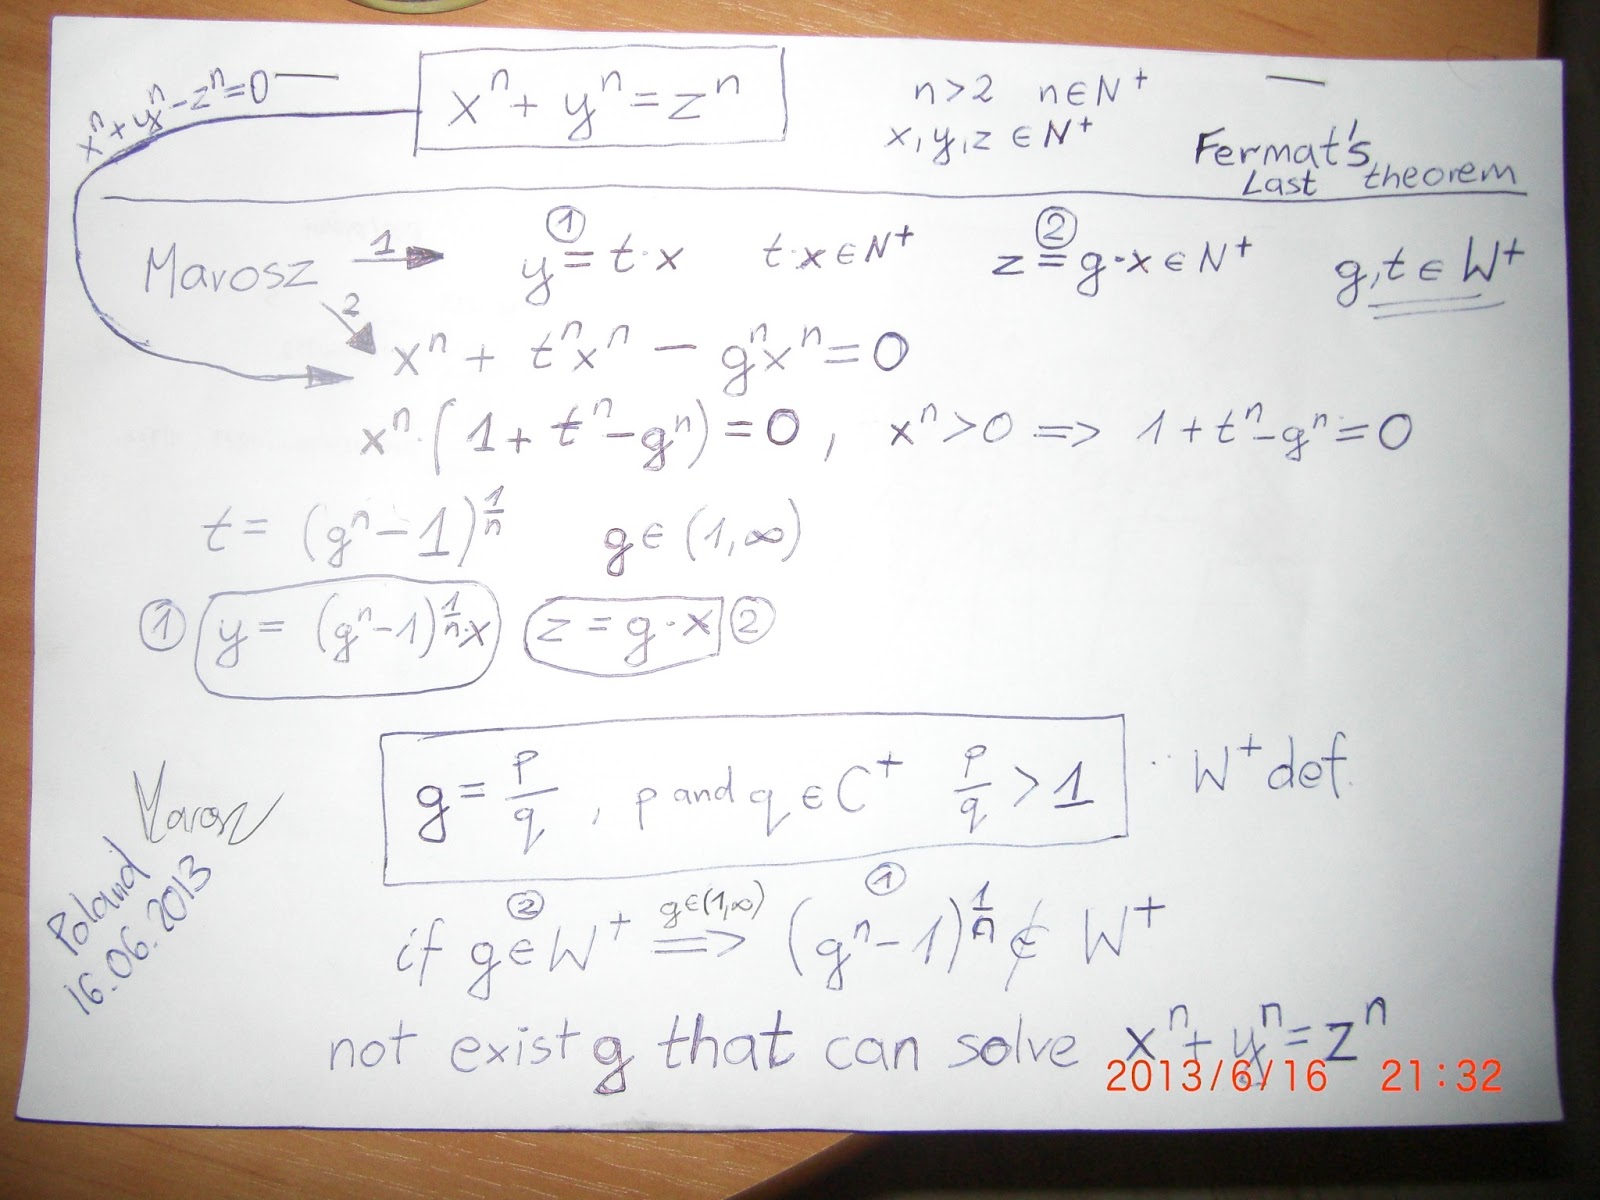 xⁿ + yⁿ - zⁿ = 0
xⁿ + yⁿ = zⁿ
n > 2 n ∈ N⁺
x, y, z ∈ N⁺
Fermat's
Last theorem
Marosz 1 → y = t·x t·x ∈ N⁺ z = g·x ∈ N⁺ g, t ∈ W⁺
① ②
2
xⁿ + tⁿxⁿ - gⁿxⁿ = 0
xⁿ·(1 + tⁿ - gⁿ) = 0, xⁿ > 0 => 1 + tⁿ - gⁿ = 0
t = (gⁿ - 1)^(1/n) g ∈ (1, ∞)
① y = (gⁿ - 1)^(1/n)·x z = g·x ②
g = p/q, p and q ∈ C⁺ p/q > 1 W⁺ def.
Marosz
Poland
16.06.2013
② g∈(1,∞) ①
if g ∈ W⁺ => (gⁿ - 1)^(1/n) ∉ W⁺
not exist g that can solve xⁿ + yⁿ = zⁿ
2013/6/16 21:32